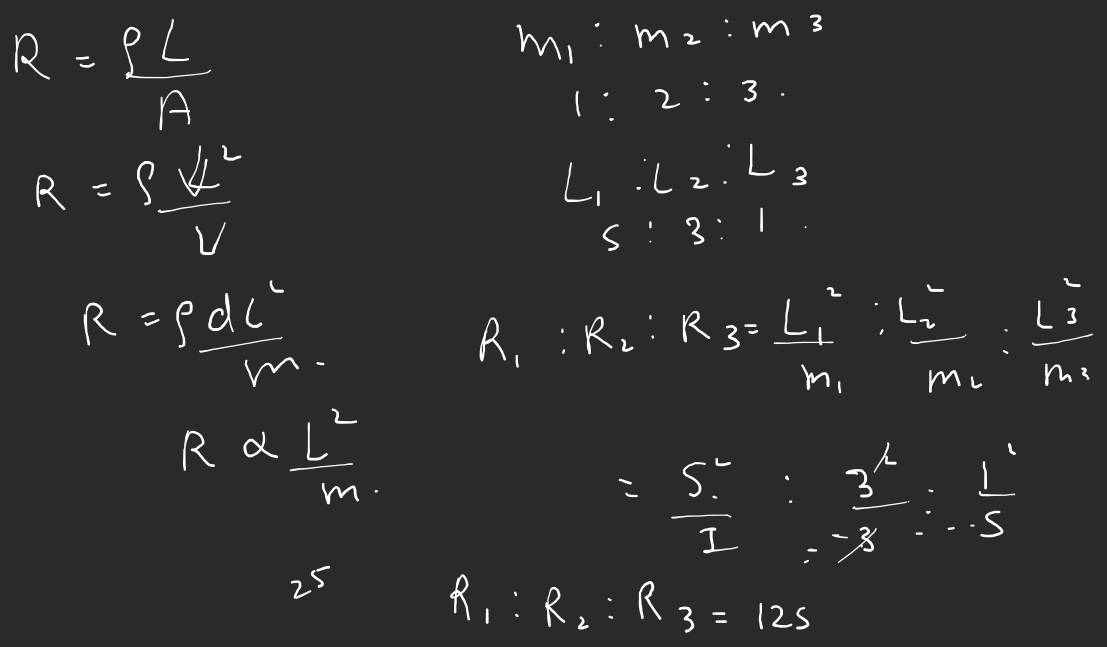 R = ρL/A
R = ρL²/V
R = ρdL²/m.
R ∝ L²/m.
25
m₁ : m₂ : m3
1 : 2 : 3.
L₁ : L₂ : L₃
5 : 3 : 1.
R₁ : R₂ : R₃ = L₁²/m₁ : L₂²/m₂ : L₃²/m₃
= 5²/1 : 3²/3 : 1²/5
R₁ : R₂ : R₃ = 125